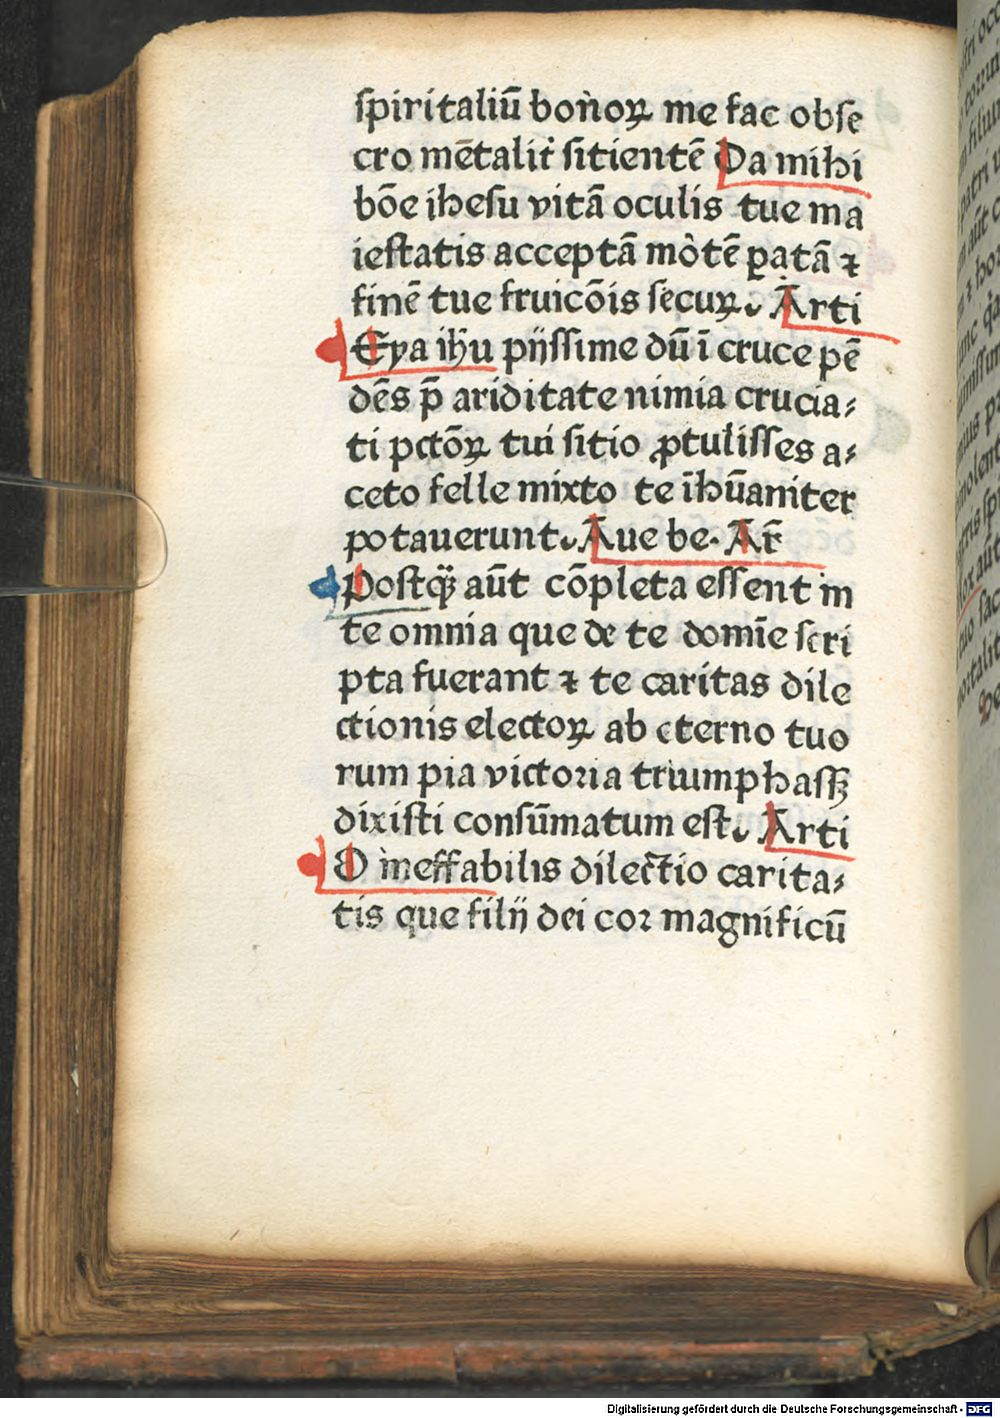 spiritaliū bonoꝝ me fac obse
cro mētalit̉ sitientē Da mihi
bōe ihesu vitā oculis tue ma
iestatis acceptā mòtē ꝑatā ⁊
finē tue fruicōis secuꝝ. Arti
Eya ihu̅ pijssime dū ī cruce pē
dēs p̄ ariditate nimia crucia⸗
ti pctōꝝ tui sitio ꝓtulisses a⸗
ceto felle mixto te īhūaniter
potauerunt. Aue be. Ar̄
Postq̄ȝ aūt cōpleta essent in
te omnia que de te domīe scri
pta fuerant ⁊ te caritas dile
ctionis electoꝝ ab eterno tuo
rum pia victoꝛia triumphassȝ
dixisti consūmatum est. Arti
O ineffabilis dilect̄io carita⸗
tis que filij dei coꝛ magnificū
Digitalisierung gefördert durch die Deutsche Forschungsgemeinschaft - DFG